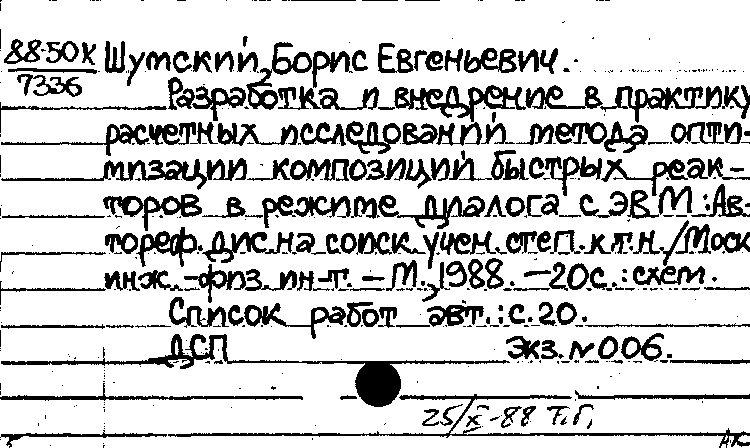 88-50X
7336
Шумский, Борис Евгеньевич.
Разработка и внедрение в практику
расчетных исследований метода опти-
мизации композиций быстрых реак-
торов в режиме диалога с ЭВМ: Ав-
тореф. дис. на соиск. учен. степ. к.т.н. /Моск
инж.-физ. ин-т. – М., 1988. – 20с.: схем.
Список работ авт.: с.20.
ДСП Экз. №006.
25/X-88 Т.Г.